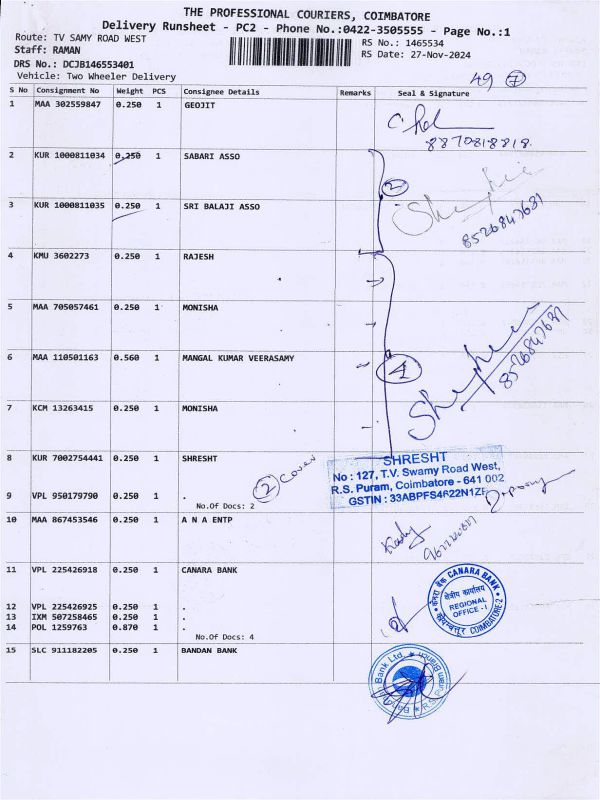 THE PROFESSIONAL COURIERS, COIMBATORE
Delivery Runsheet - PC2 - Phone No.:0422-3505555 - Page No.:1
Route: TV SAMY ROAD WEST
RS No.: 1465534
Staff: RAMAN
RS Date: 27-Nov-2024
DRS No.: DCJB146553401
Vehicle: Two Wheeler Delivery
49 7
S No Consignment No Weight PCS Consignee Details Remarks Seal & Signature
1 MAA 302559847 0.250 1 GEOJIT
8870818818
2 KUR 1000811034 0.250 1 SABARI ASSO
2
3 KUR 1000811035 0.250 1 SRI BALAJI ASSO
8526847631
4 KMU 3602273 0.250 1 RAJESH
5 MAA 705057461 0.250 1 MONISHA
6 MAA 110501163 0.560 1 MANGAL KUMAR VEERASAMY
4
8526847631
7 KCM 13263415 0.250 1 MONISHA
8 KUR 7002754441 0.250 1 SHRESHT
2 Cover
SHRESHT
No : 127, T.V. Swamy Road West,
R.S. Puram, Coimbatore - 641 002
GSTIN : 33ABPFS4622N1ZF
9 VPL 950179790 0.250 1 .
No.Of Docs: 2
10 MAA 867453546 0.250 1 A N A ENTP
11 VPL 225426918 0.250 1 CANARA BANK
केनरा बैंक CANARA BANK
क्षेत्रीय कार्यालय
REGIONAL
OFFICE - I
कोयम्बत्तूर COIMBATORE-2
12 VPL 225426925 0.250 1 .
13 IXM 507258465 0.250 1 .
14 POL 1259763 0.870 1 .
No.Of Docs: 4
15 SLC 911182205 0.250 1 BANDAN BANK
Bank Ltd.
R.S. Puram Branch